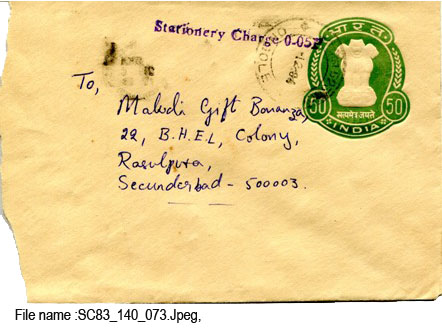 Stationery Charge 0-05P
भारत
50 50
सत्यमेव जयते
INDIA
To,
Malodi Gift Bonanza,
22, B.H.E.L, Colony,
Rasulpura,
Secunderbad - 500003.
File name :SC83_140_073.Jpeg,